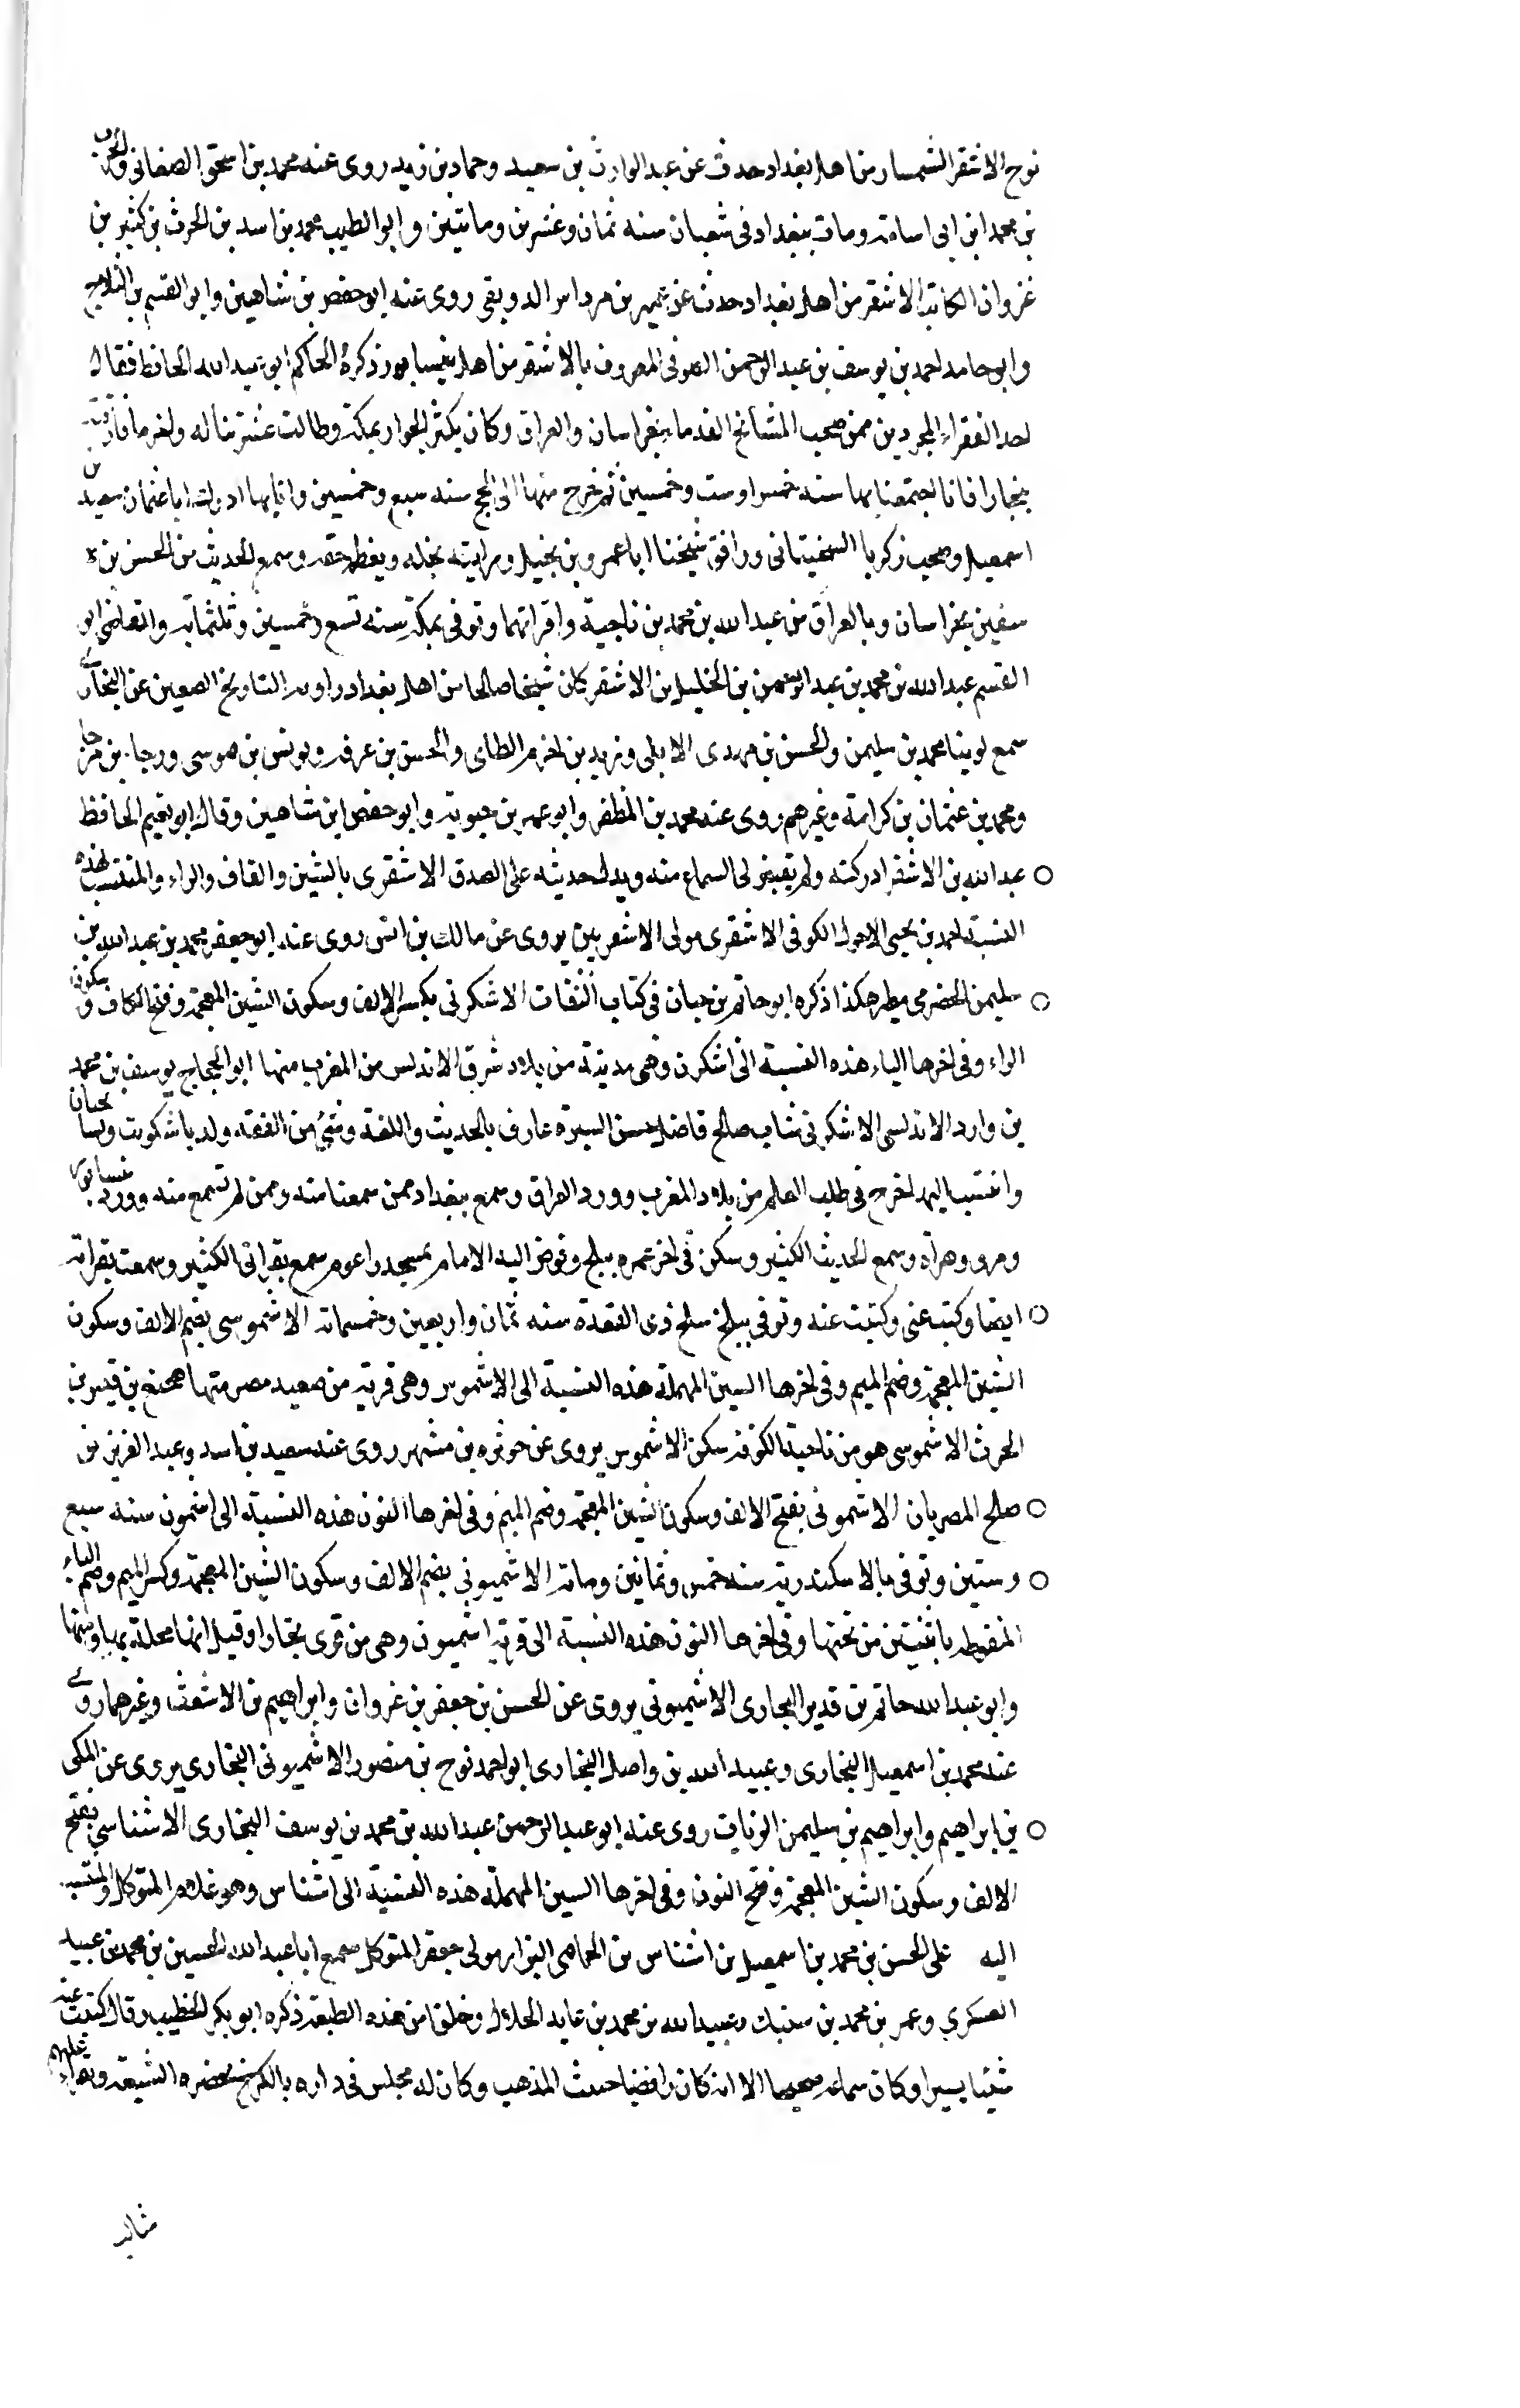 نوح الاشقر السمسار من اهل بغداد حدث عن عبد الوارث بن سعيد وحماد بن زيد روى عنه محمد بن اسحق الصغانى والحرث
بن محمد ابن ابى اسامه ومات ببغداد فى شعبان سنه ثمان وعشرين ومائتين وابو الطيب محمد بن اسد بن الحرث بن كثير بن
غزوان الكاتب الاشقر من اهل بغداد حدث عن عمير بن مرداس الدويقى روى عنه ابو حفص بن شاهين وابو القسم بن الثلاج
وابو حامد احمد بن يوسف بن عبد الرحمن الصوفى المعروف بالاشقر من اهل نيسابور ذكره الحاكم ابو عبد الله الحافظ فقال
احد الفقراء المجردين ممن صحب المشائخ القدماء بخراسان والعراق وكان يكثر الجوار بمكة وطالت عشرتنا له واخر ما فارقته
ببخارا فانا اجتمعنا بها سنه خمس اوست وخمسين ثم خرج منها الى الحج سنه سبع وخمسين وانا بها ادرك ابا عثمان سعيد بن
اسمعيل وصحب زكريا السختيانى ورافق شيخنا ابا عمرو بن نجيد ورايته يجله ويعظم حقه وسمع الحديث من الحسن بن
سفين بخراسان وبالعراق من عبد الله بن محمد بن ناجية واقرانهما وتوفى بمكة سنه تسع وخمسين وثلثمائه والقاضى ابو
القسم عبد الله بن محمد بن عبد الرحمن بن الخليل بن الاشقر كان شيخا صالحا من اهل بغداد راويه التاريخ الصغير عن البخارى
سمع لوينا محمد بن سليمن والحسن بن مهدى الابلى وزيد بن اخزم الطاى والحسن بن عرفه ويونس بن موسى ورجا بن مرجا
ومحمد بن عثمان بن كرامة وغيرهم روى عنه محمد بن المظفر وابو عمر بن حيويه وابو حفص ابن شاهين وقال ابو نعيم الحافظ
عبد الله بن الاشقر ادركته ولم يقض لى السماع منه ويدل حديثه على الصدق الاشقرى بالشين والقاف والراء والمنتسب بهذه
النسبة احمد بن يحيى الاحول الكوفى الاشقرى مولى الاشعريين يروى عن مالك بن انس روى عنه ابو جعفر محمد بن عبد الله بن
سليمن الحضرمى مطير هكذا ذكره ابو حاتم بن حبان فى كتاب الثقات الاشكرنى بكسر الالف وسكون الشين المعجمة وفتح الكاف وسكون
الراء وفى اخرها الياء هذه النسبة الى اشكرن وهى مدينة من بلاد شرق الاندلس من المغرب منها ابو الحجاج يوسف بن محمد
بن وارد الاندلسى الاشكرنى شاب صالح فاضل حسن السيرة عارف بالحديث واللغة وشئ من الفقه ولد باشكونت ونسا بجيان
وانتسب اليها خرج فى طلب العلم من بلاد المغرب وورد العراق وسمع ببغداد ممن سمعنا منه وممن لم نسمع منه وورد نيسابور
ومرو وهراة وسمع الحديث الكثير وسكن فى اخر عمره ببلخ وفوض اليه الامام بمسجد راعوم سمع بقراتى الكثير وسمعت بقراته
ايضا وكتب عنى وكتبت عنه وتوفى ببلخ سلخ ذى القعدة سنه ثمان واربعين وخمسمائه الاشموسى بضم الالف وسكون
الشين المعجمة وضم الميم وفى اخرها السين المهملة هذه النسبة الى الاشموس وهى قرية من صعيد مصر منها هجنع بن قيس بن
الحرث الاشموسى هو من ناحية الكوفه سكن الاشموس يروى عن حوثره بن مسهر روى عنه سعيد بن اسد وعبد العزيز بن
صلح المصريان الاشمونى بفتح الالف وسكون الشين المعجمة وضم الميم وفى اخرها النون هذه النسبة الى اشمون سنة سبع
وستين وتوفى بالاسكندرية سنه خمس وثمانين ومائه الاشميونى بضم الالف وسكون الشين المعجمة وكسر الميم وضم الياء
المنقوطه باثنيتين من تحتها وفى اخرها النون هذه النسبة الى قرية اشميون وهى من قرى بخارا وقيل انها محلة بها ومنها
وابو عبد الله حاتم بن قدير البخارى الاشميونى يروى عن الحسن بن جعفر بن غزوان وابراهيم بن الاشعث وغيرهما روى
عنه محمد بن اسمعيل البخارى وعبيد الله بن واصل البخارى ابو احمد نوح بن منصور الاشميونى البخارى يروى عن المكى
بن ابراهيم وابراهيم بن سليمن الزيات روى عنه ابو عبد الرحمن عبد الله بن محمد بن يوسف البخارى الاشناسى بفتح
الالف وسكون الشين المعجمة وفتح النون وفى اخرها السين المهملة هذه النسبة الى اشناس وهو غلام المتوكل والمنتسب
اليه على الحسن بن محمد بن اسمعيل بن اشناس بن الحمامى البزار مولى جعفر المتوكل سمع ابا عبد الله الحسين بن محمد بن عبيد
العسكري وعمر بن محمد بن سنبك وعبيد الله بن محمد بن عايد الخلال وخلق من هذه الطبقة ذكره ابو بكر الخطيب وقال كتبت عنه
شيئا يسيرا وكان سماعه صحيحا الا انه كان رافضيا خبيث المذهب وكان له مجلس فى داره بالكرخ يحضره الشيعة ويقراء عليهم
مثالب